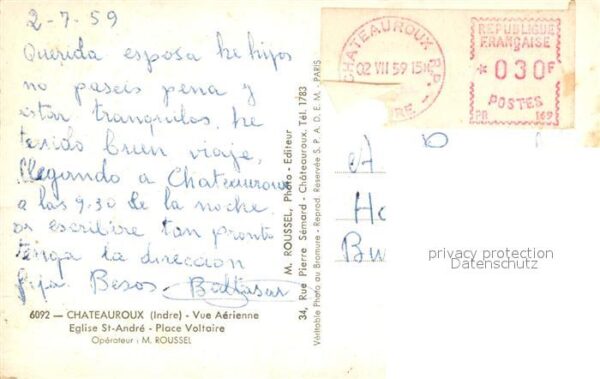 2-7.59
Querida esposa he hijos
no paseis pena y
estar tranquilos, he
tenido buen viaje,
llegando a Chateauroux
a las 9-30 de la noche
os escribire tan pronto
tenga la direccion
fija. Besos - Baltasar
6092 — CHATEAUROUX (Indre) - Vue Aérienne
Eglise St-André - Place Voltaire
Opérateur : M. ROUSSEL
M. ROUSSEL, Photo - Editeur
34, Rue Pierre Sémard - Châteauroux. Tél. 1783
Véritable Photo au Bromure - Reprod. Réservée S. P. A. D. E. M. - PARIS
CHATEAUROUX R.P.
02 VII 59 15H
REPUBLIQUE
FRANÇAISE
* 030F
POSTES
PR 169
A
Ho
Bu
privacy protection
Datenschutz